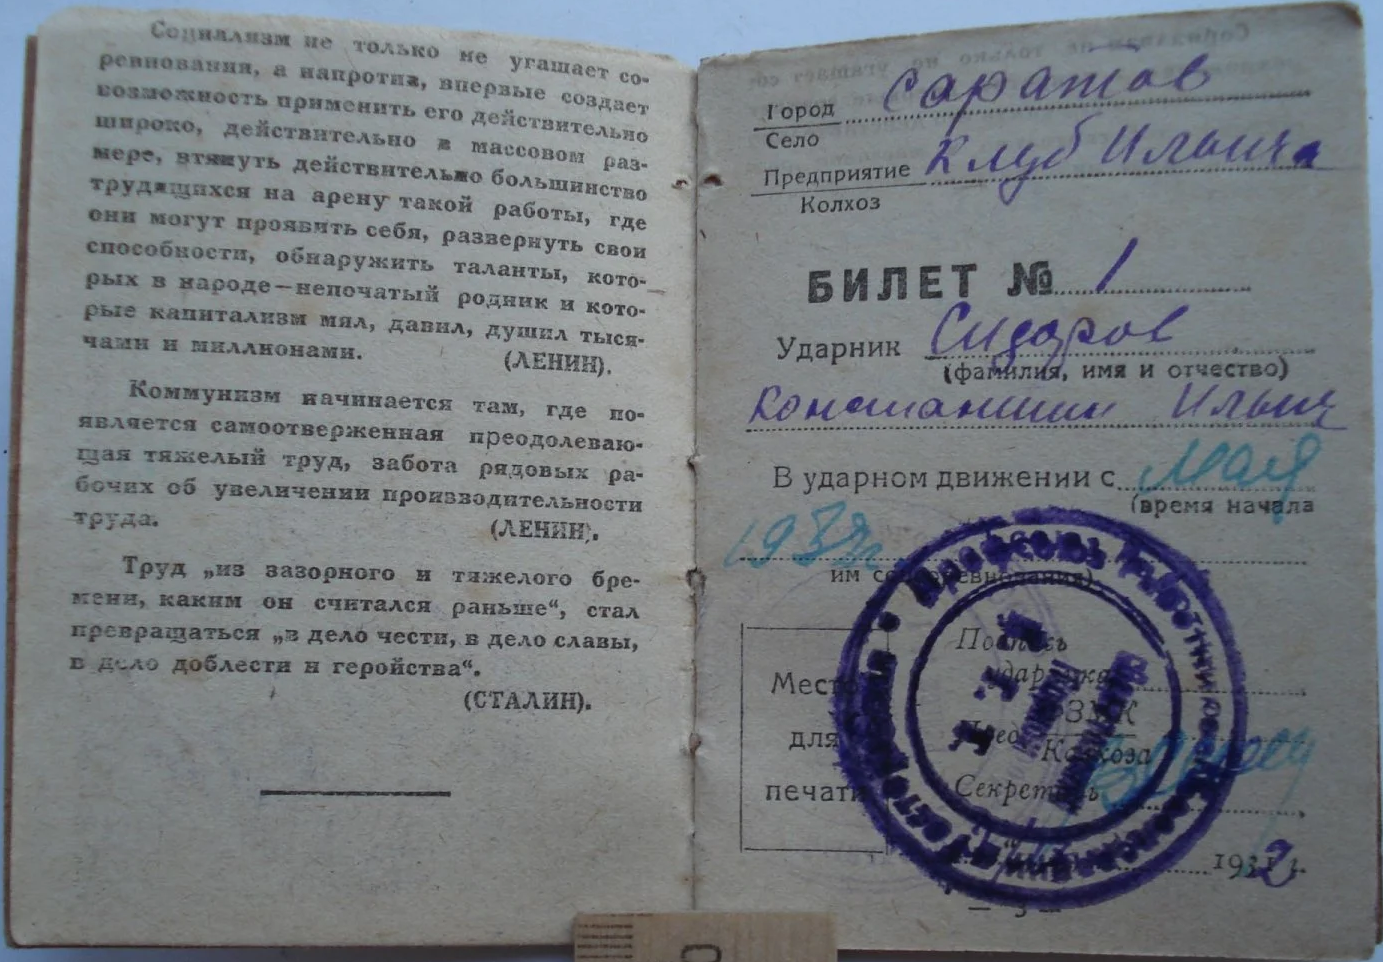 Социализм не только не угашает со-
ревнования, а напротив, впервые создает
возможность применить его действительно
широко, действительно в массовом раз-
мере, втянуть действительно большинство
трудящихся на арену такой работы, где
они могут проявить себя, развернуть свои
способности, обнаружить таланты, кото-
рых в народе—непочатый родник и кото-
рые капитализм мял, давил, душил тыся-
чами и миллионами.
(ЛЕНИН).
Коммунизм начинается там, где по-
является самоотверженная преодолеваю-
щая тяжелый труд, забота рядовых ра-
бочих об увеличении производительности
труда.
(ЛЕНИН).
Труд „из зазорного и тяжелого бре-
мени, каким он считался раньше“, стал
превращаться „в дело чести, в дело славы,
в дело доблести и геройства“.
(СТАЛИН).
Город Саратов
Село
Предприятие Клуб Ильича
Колхоз
БИЛЕТ № 1
Ударник Сидоров
(фамилия, имя и отчество)
Константин Ильич
В ударном движении с мая
(время начала
им соцсоревнования)
Место
для
печати
Подпись
ударника
Пред. ФЗМК
Колхоза
Секретарь
Профсоюз
1932 г.
— 3 —